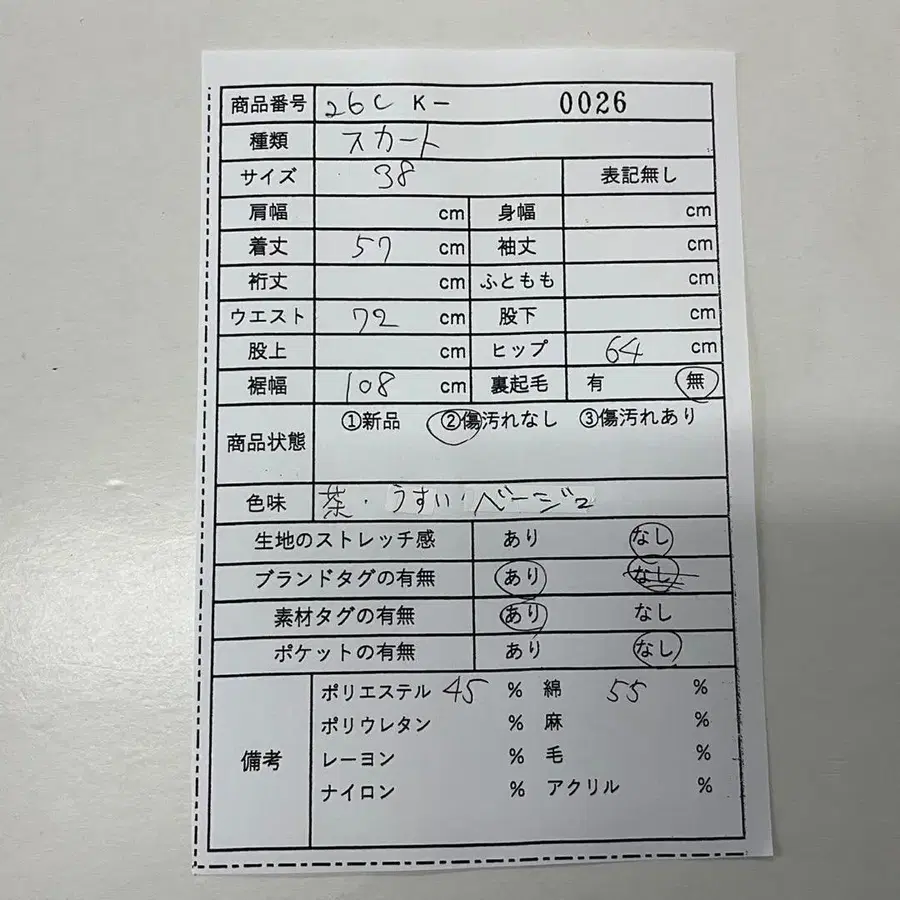 商品番号 26C K- 0026
種類 スカート
サイズ 38 表記無し
肩幅 cm 身幅 cm
着丈 57 cm 袖丈 cm
裄丈 cm ふともも cm
ウエスト 72 cm 股下 cm
股上 cm ヒップ 64 cm
裾幅 108 cm 裏起毛 有 無
商品状態 ①新品 ②傷汚れなし ③傷汚れあり
色味 茶・うすい・ベージュ
生地のストレッチ感 あり なし
ブランドタグの有無 あり なし
素材タグの有無 あり なし
ポケットの有無 あり なし
備考 ポリエステル 45 % 綿 55 %
ポリウレタン % 麻 %
レーヨン % 毛 %
ナイロン % アクリル %